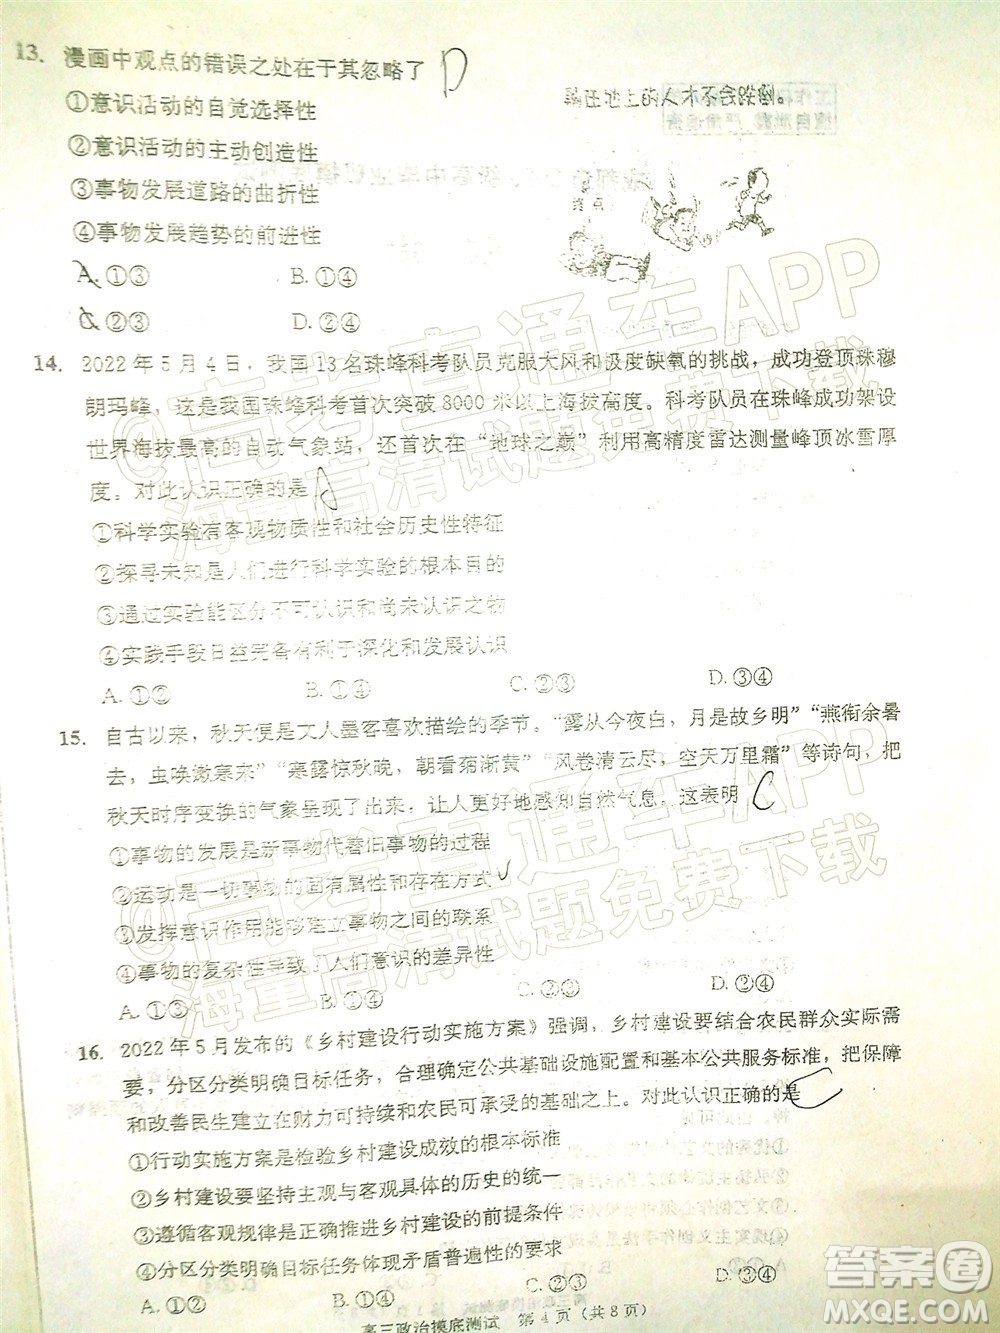 13. 漫画中观点的错误之处在于其忽略了 D
①意识活动的自觉选择性
②意识活动的主动创造性
③事物发展道路的曲折性
④事物发展趋势的前进性
A. ①③ B. ①④
C. ②③ D. ②④
躺在地上的人才不会跌倒。
终点
14. 2022年5月4日，我国13名珠峰科考队员克服大风和极度缺氧的挑战，成功登顶珠穆
朗玛峰，这是我国珠峰科考首次突破8000米以上海拔高度。科考队员在珠峰成功架设
世界海拔最高的自动气象站，还首次在“地球之巅”利用高精度雷达测量峰顶冰雪厚
度。对此认识正确的是
①科学实验有客观物质性和社会历史性特征
②探寻未知是人们进行科学实验的根本目的
③通过实验能区分不可认识和尚未认识之物
④实践手段日益完备有利于深化和发展认识
A. ①② B. ①④ C. ②③ D. ③④
15. 自古以来，秋天便是文人墨客喜欢描绘的季节。“露从今夜白，月是故乡明”“燕衔余暑
去，虫唤嫩寒来”“寒露惊秋晚，朝看菊渐黄”“风卷清云尽，空天万里霜”等诗句，把
秋天时序变换的气象呈现了出来，让人更好地感知自然气息。这表明 C
①事物的发展是新事物代替旧事物的过程
②运动是一切事物的固有属性和存在方式
③发挥意识作用能够建立事物之间的联系
④事物的复杂性导致了人们意识的差异性
A. ①③ B. ①④ C. ②③ D. ②④
16. 2022年5月发布的《乡村建设行动实施方案》强调，乡村建设要结合农民群众实际需
要，分区分类明确目标任务，合理确定公共基础设施配置和基本公共服务标准，把保障
和改善民生建立在财力可持续和农民可承受的基础之上。对此认识正确的是 C
①行动实施方案是检验乡村建设成效的根本标准
②乡村建设要坚持主观与客观具体的历史的统一
③遵循客观规律是正确推进乡村建设的前提条件
④分区分类明确目标任务体现矛盾普遍性的要求
A. ①② B. ①④ C. ②③ D. ③④
高三政治摸底测试 第4页（共8页）
@高考直通车APP
海量高清试题免费下载
@高考直通车APP
海量高清试题免费下载
答案圈
MXQE.COM